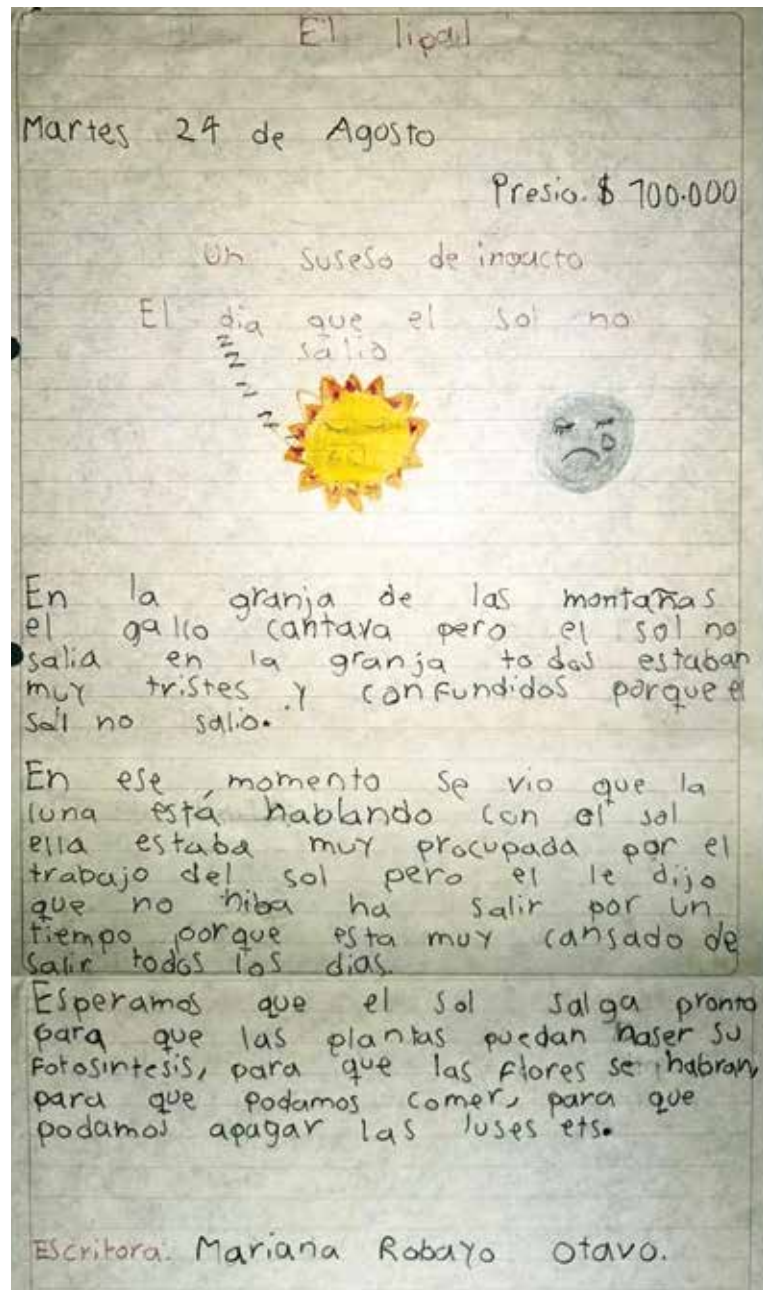 El lipail
Martes 24 de Agosto
Presio. $ 100.000
Un suseso de
El dia que el sol no
salio
zzzzz
En la granja de las montañas
el gallo cantava pero el sol no
salia en la granja todos estaban
muy tristes y confundidos porque el
sol no salio.
En ese momento se vio que la
luna está hablando con el sol
ella estaba muy procupada por el
trabajo del sol pero el le dijo
que no hiba ha salir por un
tiempo porque esta muy cansado de
salir todos los dias.
Esperamos que el sol salga pronto
para que las plantas puedan haser su
Fotosintesis, para que las flores se habran,
para que podamos comer, para que
podamos apagar las luses ets.
Escritora: Mariana Robayo Otavo.